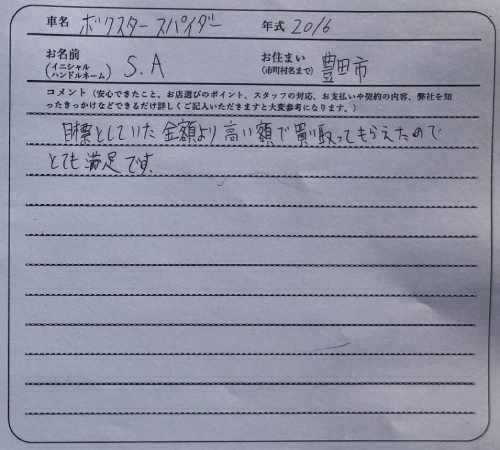 車名 ボクスター スパイダー 年式 2016
お名前 (イニシャル ハンドルネーム) S.A お住まい (市町村名まで) 豊田市
コメント（安心できたこと、お店選びのポイント、スタッフの対応、お支払いや契約の内容、弊社を知
ったきっかけなどできるだけ詳しくご記入いただきますと大変参考になります。）
目標としていた金額より高い額で買い取ってもらえたので
とても満足です。